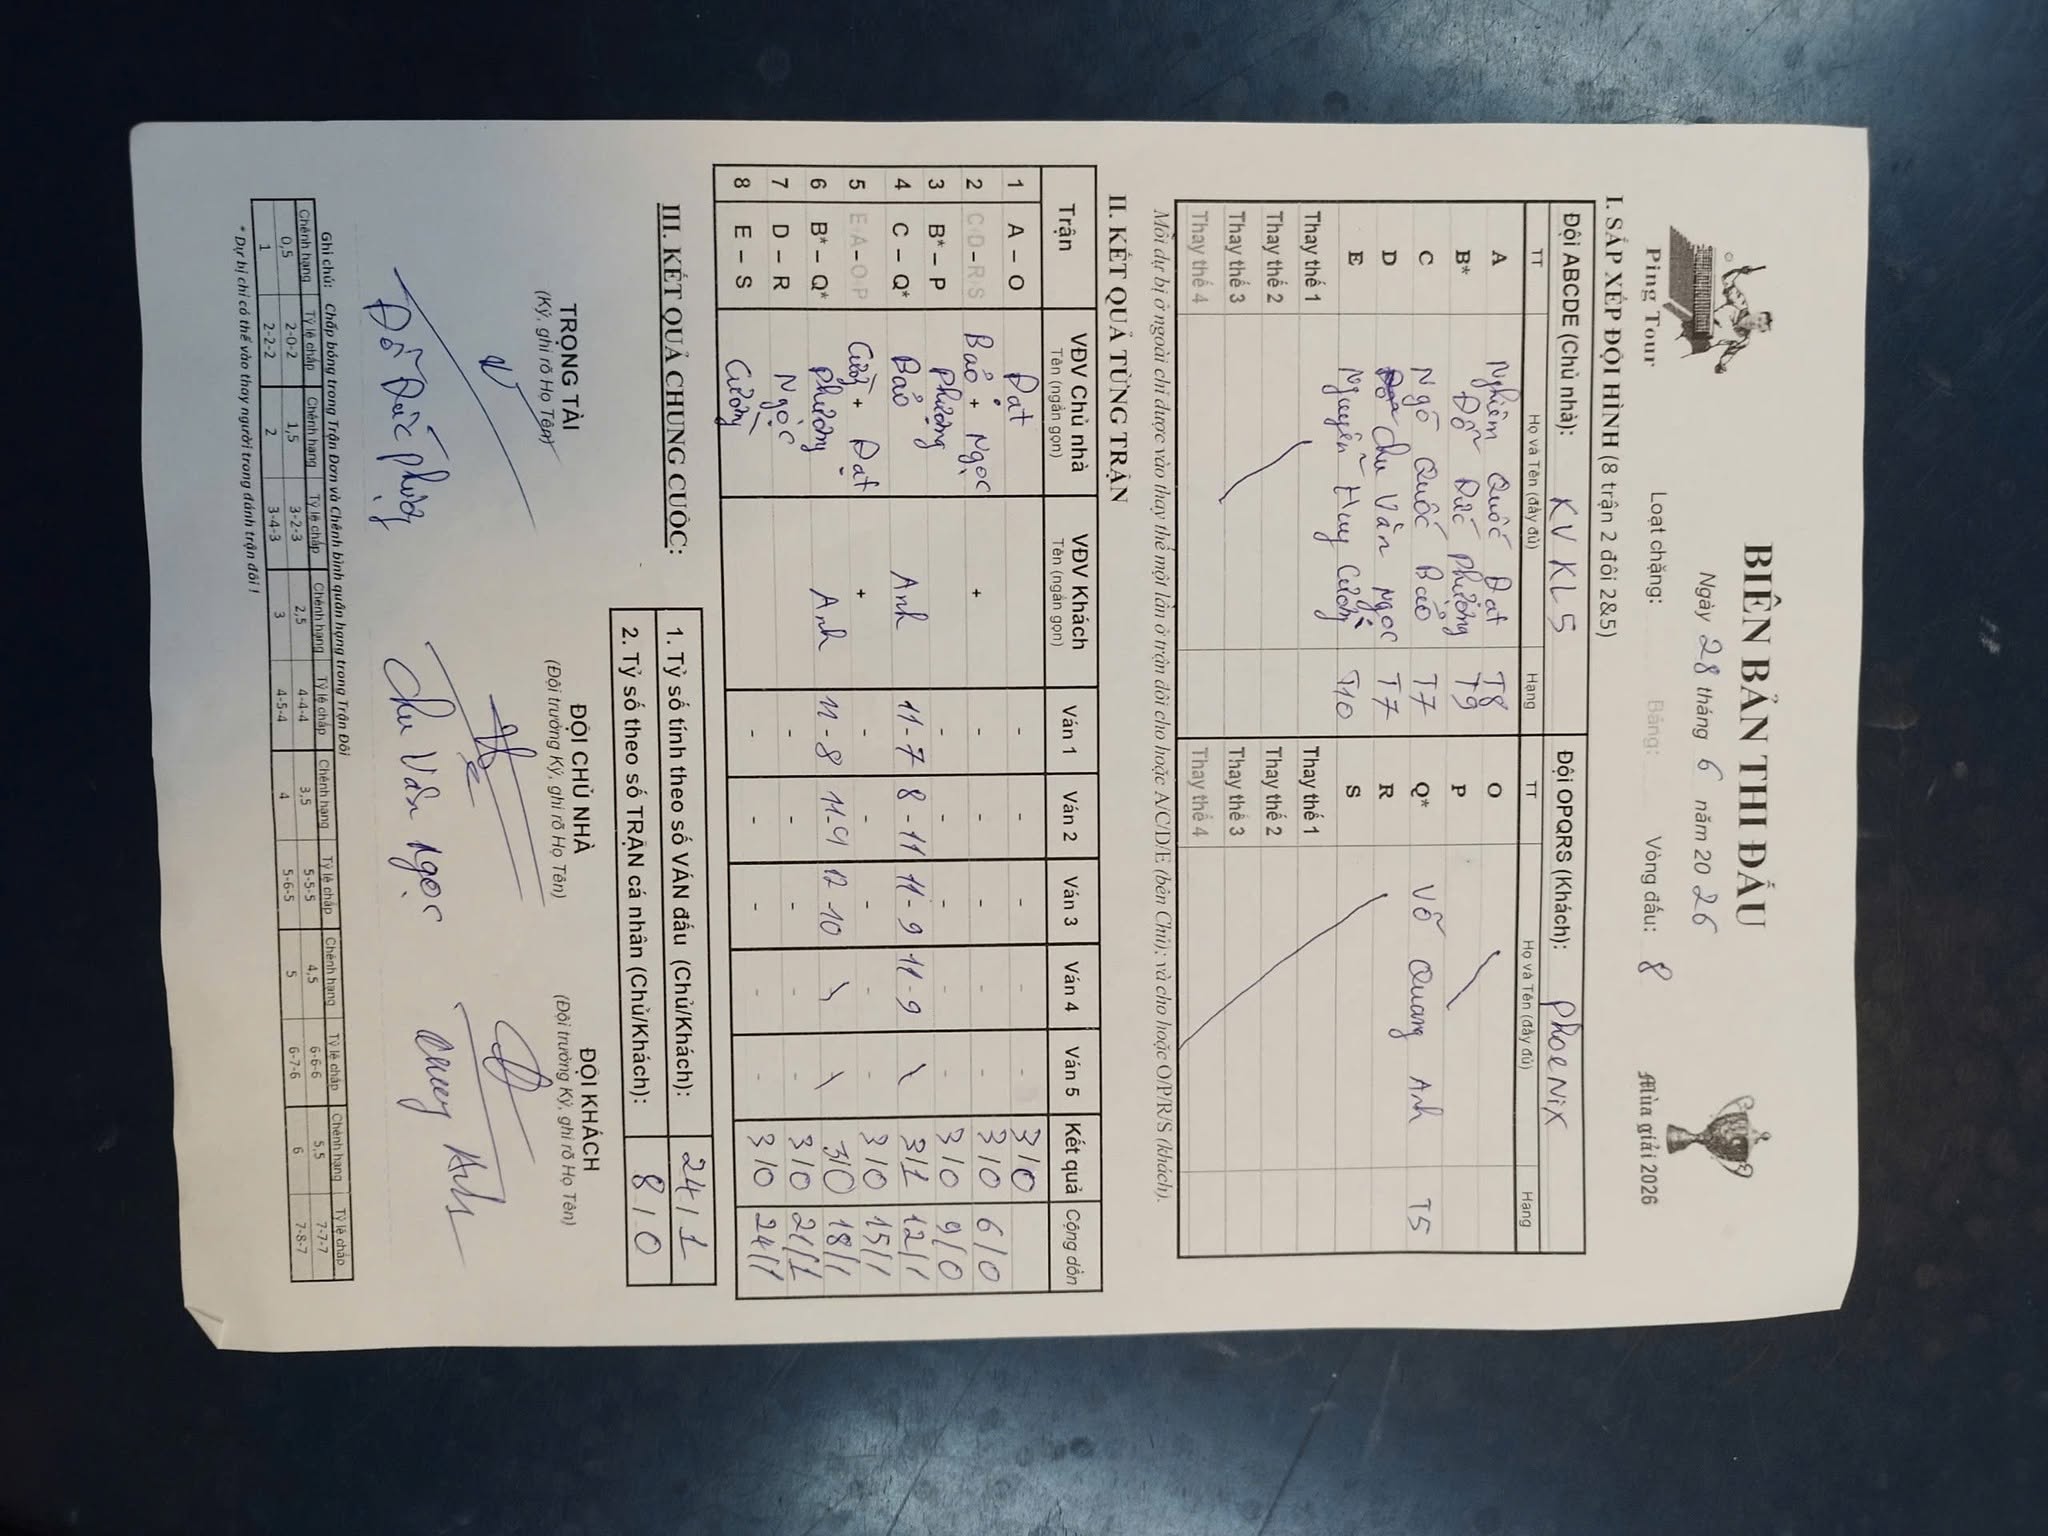 BIÊN BẢN THI ĐẤU
Ngày 28 tháng 6 năm 2026
Ping Tour Loạt chặng: Bảng: Vòng đấu: 8 Mùa giải 2026
I. SẮP XẾP ĐỘI HÌNH (8 trận 2 đôi 2&5)
Đội ABCDE (Chủ nhà): KV KL 5 Đội OPQRS (Khách): PhoeNix
TT Họ và Tên (đầy đủ) Hạng TT Họ và Tên (đầy đủ) Hạng
A Nghiêm Quốc Đạt T8 O
B* Đỗ Đức Phượng T9 P
C Ngô Quốc Bảo T7 Q* Võ Quang Anh T5
D Chu Văn Ngọc T7 R
E Nguyễn Huy Cường T10 S
Thay thế 1 Thay thế 1
Thay thế 2 Thay thế 2
Thay thế 3 Thay thế 3
Thay thế 4 Thay thế 4
Mỗi dự bị ở ngoài chỉ được vào thay thế một lần ở trận đôi cho hoặc A/C/D/E (bên Chủ); và cho hoặc O/P/R/S (khách).
II. KẾT QUẢ TỪNG TRẬN
Trận VĐV Chủ nhà VĐV Khách Ván 1 Ván 2 Ván 3 Ván 4 Ván 5 Kết quả Cộng dồn
Tên (ngắn gọn) Tên (ngắn gọn)
1 A – O Đạt - - - - - 3/0
2 C+D – R+S Bảo + Ngọc + - - - - - 3/0 6/0
3 B* – P Phượng - - - - - 3/0 9/0
4 C – Q* Bảo Anh 11-7 8-11 11-9 11-9 3/1 12/1
5 E+A – O+P Cường + Đạt + - - - - - 3/0 15/1
6 B* – Q* Phượng Anh 11-8 11-9 12-10 3/0 18/1
7 D – R Ngọc - - - - - 3/0 21/1
8 E – S Cường - - - - - 3/0 24/1
III. KẾT QUẢ CHUNG CUỘC:
1. Tỷ số tính theo số VÁN đấu (Chủ/Khách): 24/1
2. Tỷ số theo số TRẬN cá nhân (Chủ/Khách): 8/0
TRỌNG TÀI ĐỘI CHỦ NHÀ ĐỘI KHÁCH
(Ký, ghi rõ Họ Tên) (Đội trưởng Ký, ghi rõ Họ Tên) (Đội trưởng Ký, ghi rõ Họ Tên)
Đỗ Đức Phượng Chu Văn Ngọc Quang Anh
Ghi chú: Chấp bóng trong Trận Đơn và Chênh bình quân hạng trong Trận Đôi
Chênh hạng Tỷ lệ chấp Chênh hạng Tỷ lệ chấp Chênh hạng Tỷ lệ chấp Chênh hạng Tỷ lệ chấp Chênh hạng Tỷ lệ chấp Chênh hạng Tỷ lệ chấp
0,5 2-0-2 1,5 3-2-3 2,5 4-4-4 3,5 5-5-5 4,5 6-6-6 5,5 7-7-7
1 2-2-2 2 3-4-3 3 4-5-4 4 5-6-5 5 6-7-6 6 7-8-7
* Dự bị chỉ có thể vào thay người trong đánh trận đôi !